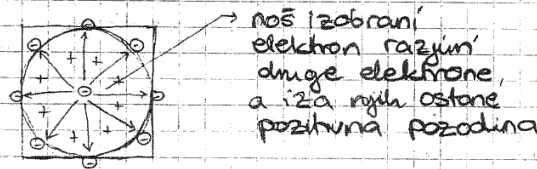 noš izobrani
elektron razjuri
druge elektrone,
a iza njih ostane
pozitivna pozodina